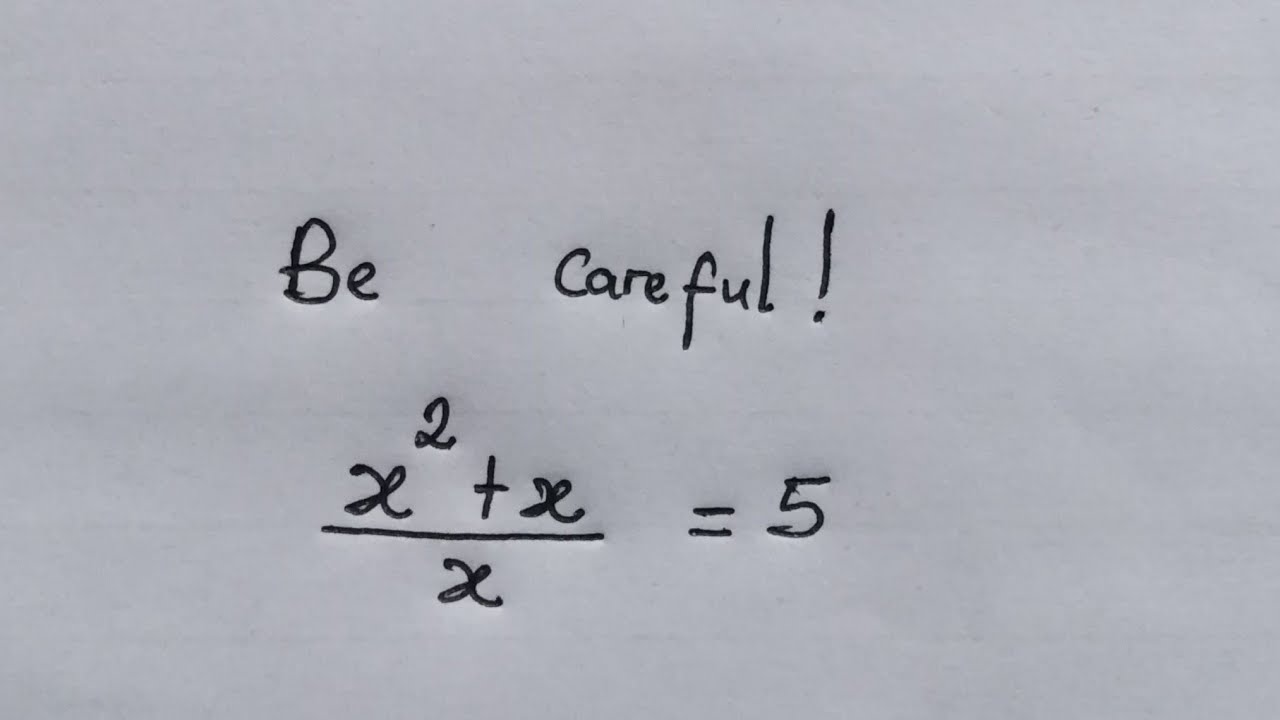 Be careful!
x² + x
x
= 5